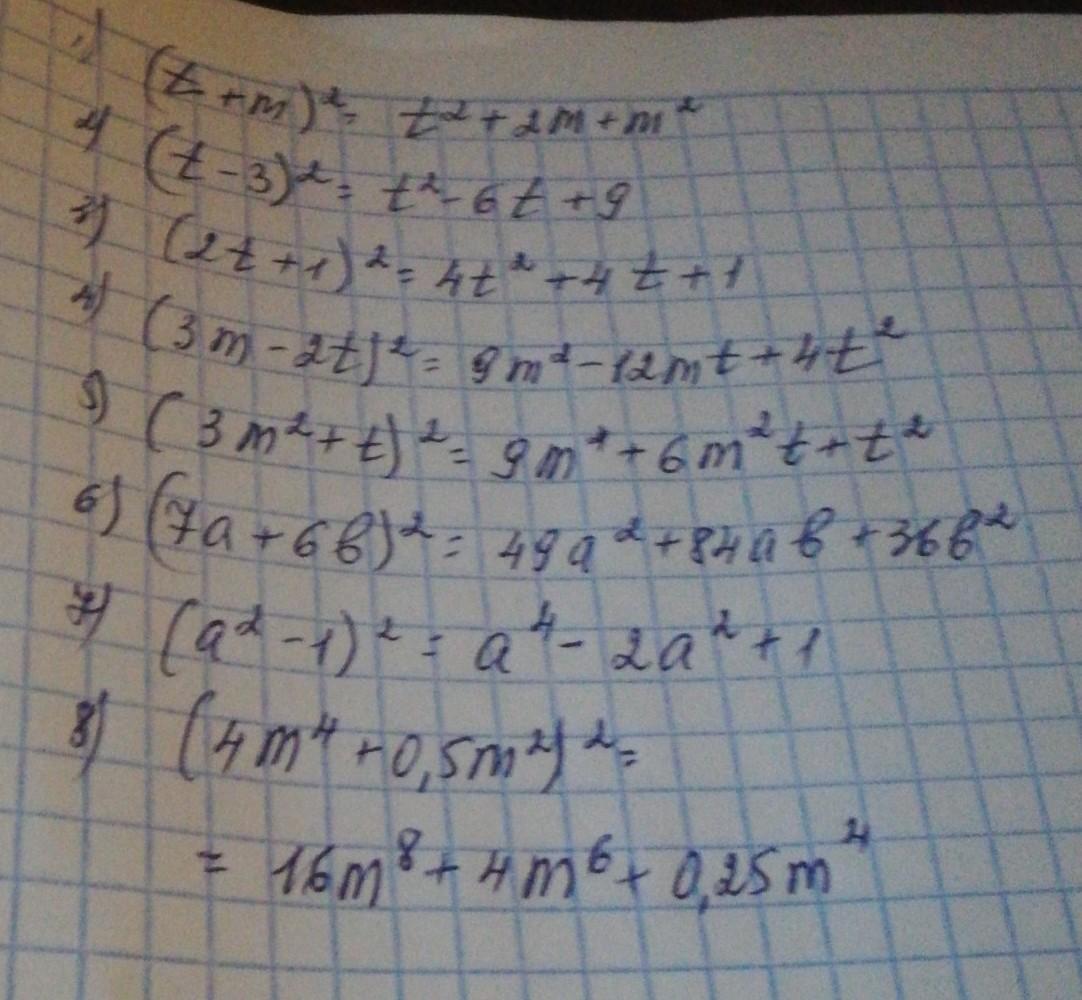 1) (t+m)² = t²+2m+m²
2) (t-3)² = t²-6t+9
3) (2t+1)² = 4t²+4t+1
4) (3m-2t)² = 9m²-12mt+4t²
5) (3m²+t)² = 9m⁴+6m²t+t²
6) (7a+6b)² = 49a²+84ab+36b²
7) (a²-1)² = a⁴-2a²+1
8) (4m⁴+0,5m²)² =
= 16m⁸+4m⁶+0,25m⁴